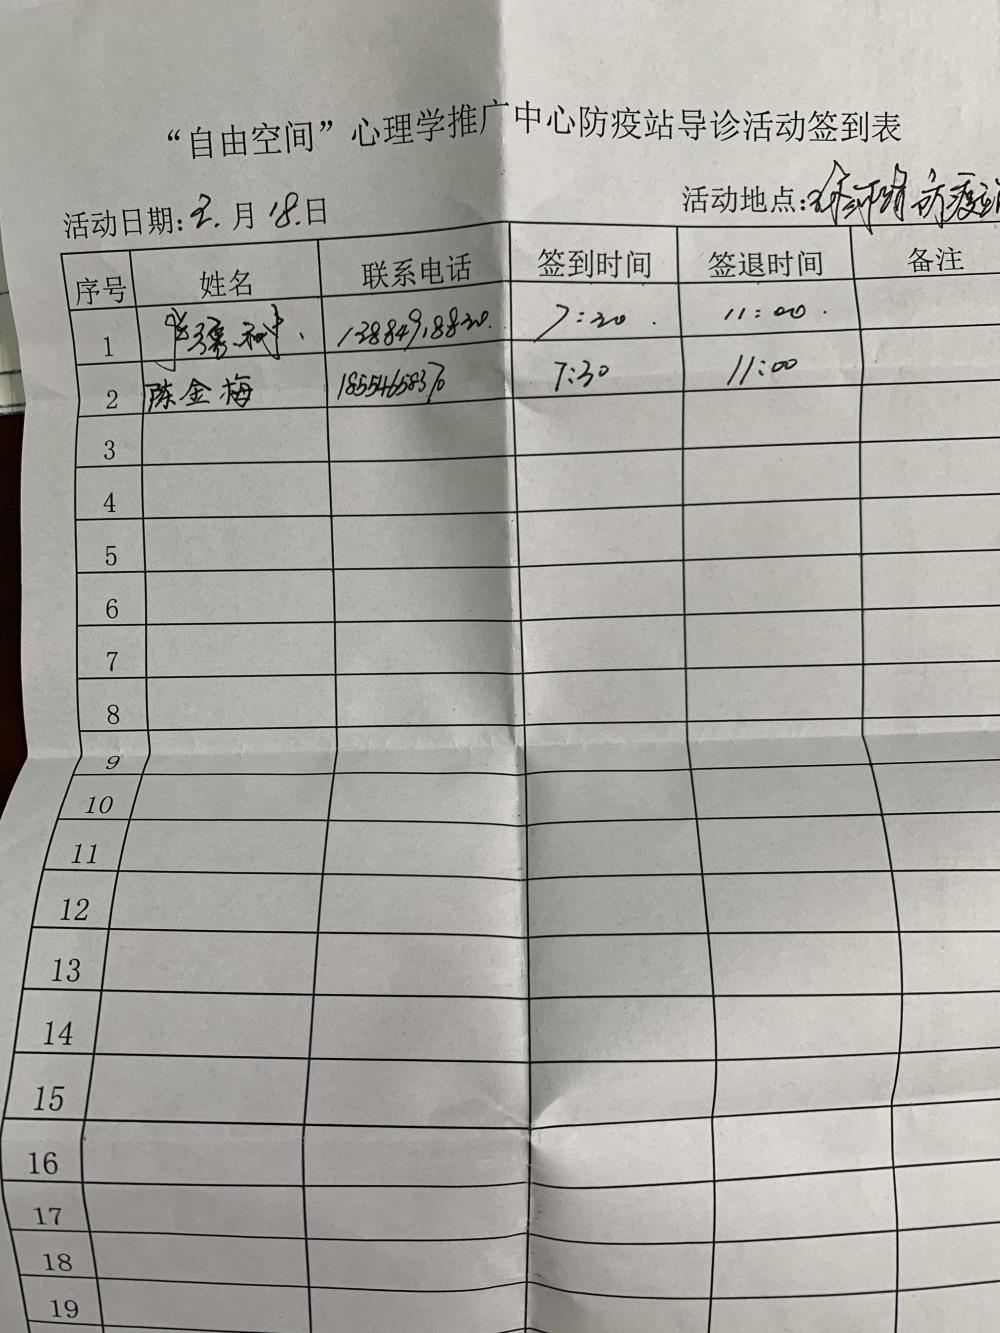 “自由空间”心理学推广中心防疫站导诊活动签到表
活动日期:2.月18.日 活动地点:防疫站
序号 姓名 联系电话 签到时间 签退时间 备注
1 13884918820. 7:20. 11:00.
2 陈金梅 18554658370 7:30 11:00
3
4
5
6
7
8
9
10
11
12
13
14
15
16
17
18
19